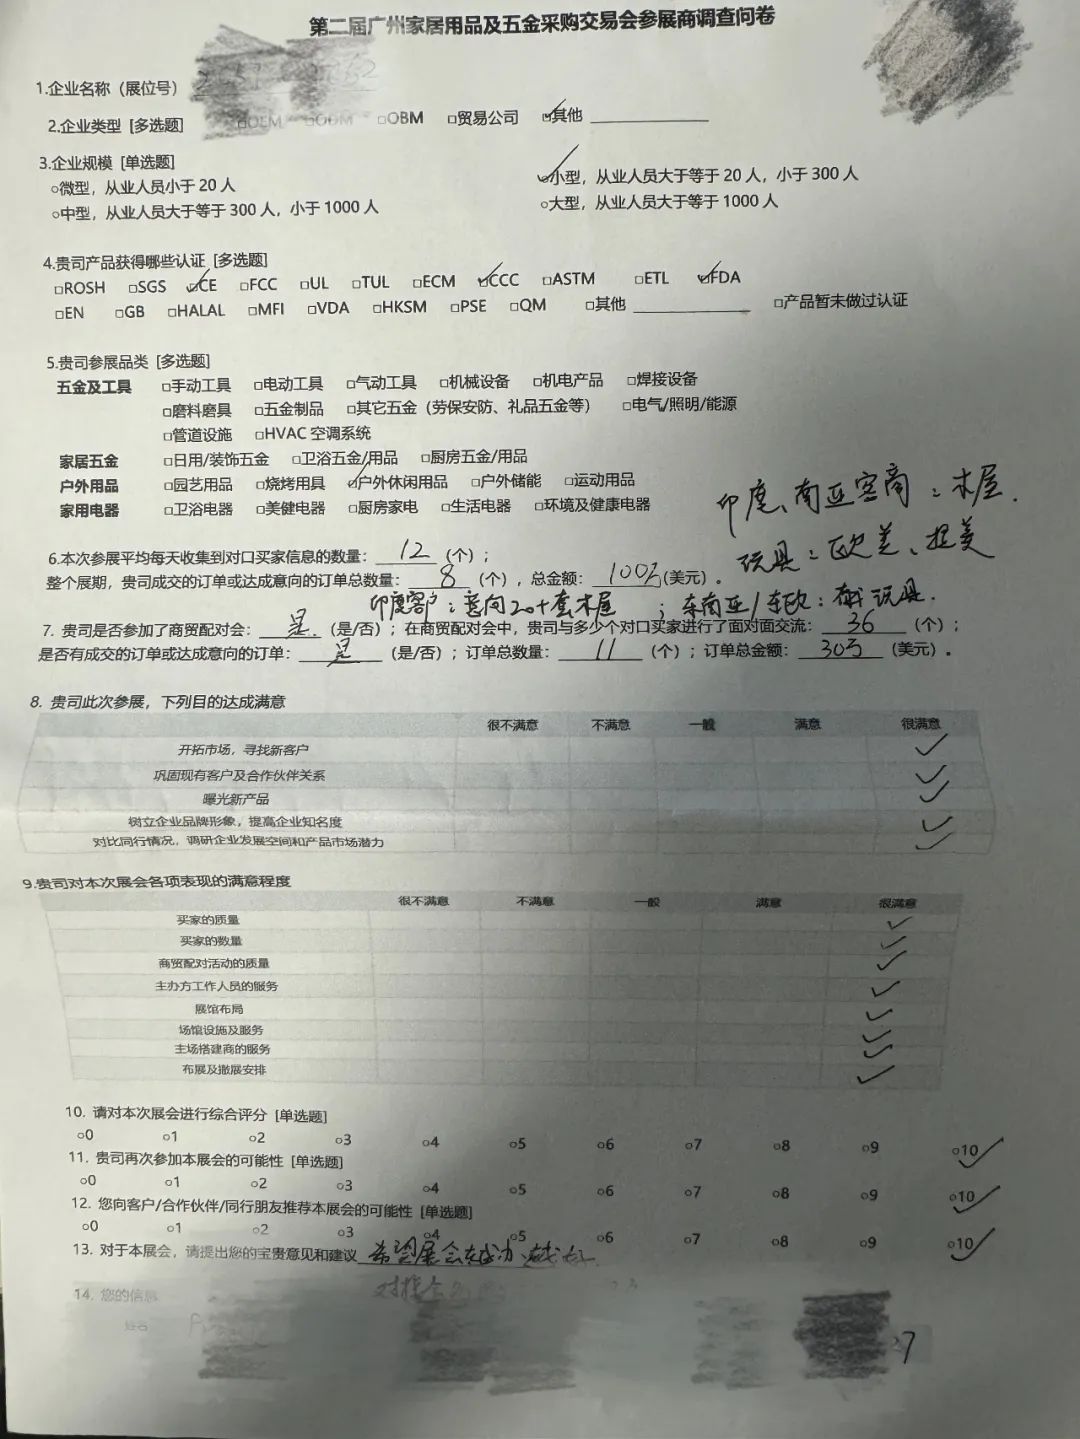 第二届广州家居用品及五金采购交易会参展商调查问卷
1.企业名称（展位号）
2.企业类型 [多选题] □OEM □ODM □OBM □贸易公司 ☑其他
3.企业规模 [单选题]
○微型，从业人员小于 20 人 ✓小型，从业人员大于等于 20 人，小于 300 人
○中型，从业人员大于等于 300 人，小于 1000 人 ○大型，从业人员大于等于 1000 人
4.贵司产品获得哪些认证 [多选题]
□ROSH □SGS ☑CE □FCC □UL □TUL □ECM ☑CCC □ASTM □ETL ☑FDA
□EN □GB □HALAL □MFI □VDA □HKSM □PSE □QM □其他 □产品暂未做过认证
5.贵司参展品类 [多选题]
五金及工具 □手动工具 □电动工具 □气动工具 □机械设备 □机电产品 □焊接设备
□磨料磨具 □五金制品 □其它五金（劳保安防、礼品五金等） □电气/照明/能源
□管道设施 □HVAC 空调系统
家居五金 □日用/装饰五金 □卫浴五金/用品 □厨房五金/用品
户外用品 □园艺用品 □烧烤用具 ☑户外休闲用品 □户外储能 □运动用品
家用电器 □卫浴电器 □美健电器 □厨房家电 □生活电器 □环境及健康电器
印度、南亚客商：木屋.
玩具：欧美、拉美
6.本次参展平均每天收集到对口买家信息的数量：12（个）；
整个展期，贵司成交的订单或达成意向的订单总数量：8（个），总金额：100万(美元)。
印度客户：意向20+套木屋；东南亚/东欧：玩具.
7. 贵司是否参加了商贸配对会：是.（是/否）；在商贸配对会中，贵司与多少个对口买家进行了面对面交流：36（个）；
是否有成交的订单或达成意向的订单：是（是/否）；订单总数量：11（个）；订单总金额：30万（美元）。
8. 贵司此次参展，下列目的达成满意
很不满意 不满意 一般 满意 很满意
开拓市场，寻找新客户 ✓
巩固现有客户及合作伙伴关系 ✓
曝光新产品 ✓
树立企业品牌形象，提高企业知名度 ✓
对比同行情况，调研企业发展空间和产品市场潜力 ✓
9.贵司对本次展会各项表现的满意程度
很不满意 不满意 一般 满意 很满意
买家的质量 ✓
买家的数量 ✓
商贸配对活动的质量 ✓
主办方工作人员的服务 ✓
展馆布局 ✓
场馆设施及服务 ✓
主场搭建商的服务 ✓
布展及撤展安排 ✓
10. 请对本次展会进行综合评分 [单选题]
○0 ○1 ○2 ○3 ○4 ○5 ○6 ○7 ○8 ○9 ○10 ✓
11. 贵司再次参加本展会的可能性 [单选题]
○0 ○1 ○2 ○3 ○4 ○5 ○6 ○7 ○8 ○9 ○10 ✓
12. 您向客户/合作伙伴/同行朋友推荐本展会的可能性 [单选题]
○0 ○1 ○2 ○3 ○4 ○5 ○6 ○7 ○8 ○9 ○10 ✓
13. 对于本展会，请提出您的宝贵意见和建议 希望展会越办越好.
14. 您的信息
姓名
7